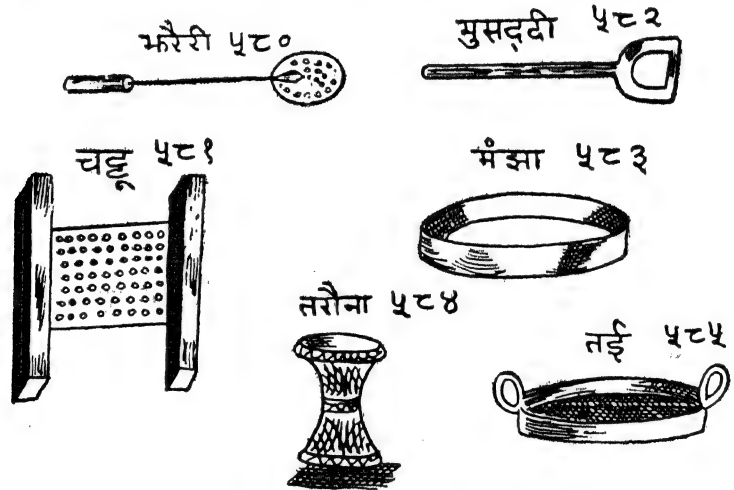 झरैरी ५८०
मुसद्दी ५८२
चट्टू ५८१
मंझा ५८३
तरौना ५८४
तई ५८५